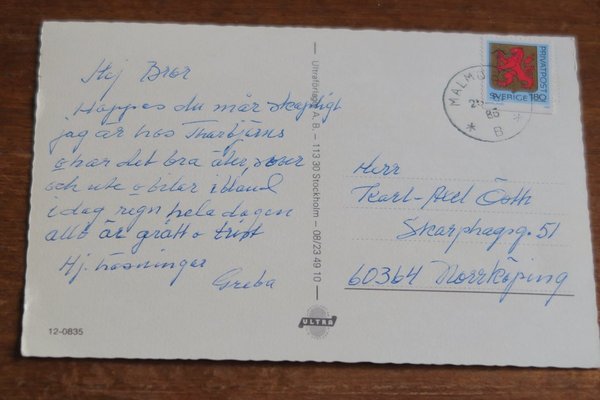 Hej Bror
Hoppas du mår skapligt
jag är hos Thorbjörns
o har det bra äter, sover
och ute o bilar ibland
i dag regn hela dagen
allt är grått o trist
Hj. hälsningar
Greta
12-0835
Ultraförlaget A. B. – 113 30 Stockholm – 08/23 49 10
ULTRA
MALMÖ
86
PRIVATPOST
SVERIGE 180
Herr
Karl-Axel Ööth
Skarphagsg. 51
60364 Norrköping